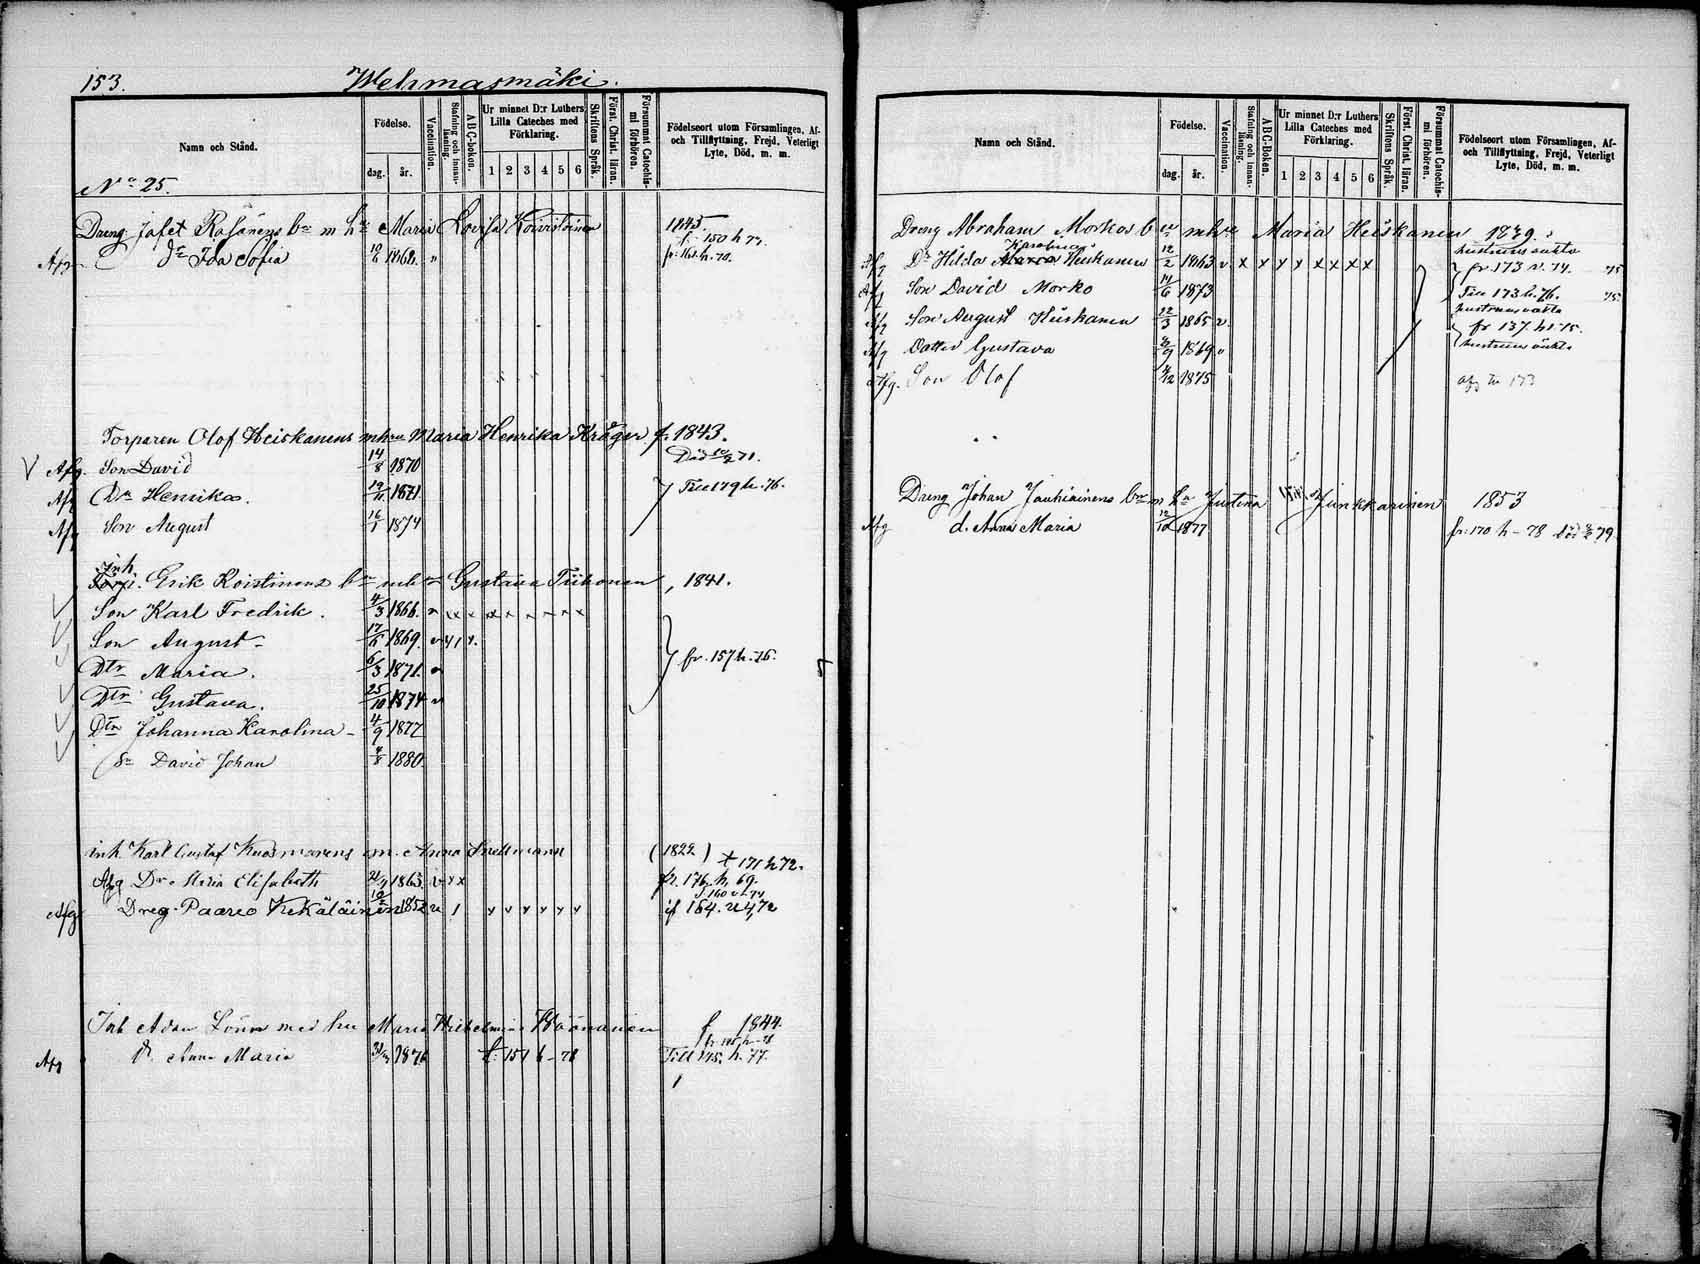 153. Wehmasmäki.
Namn och Stånd.
Födelse.
dag. år.
Vaccination.
Stafning och innanläsning.
ABC-boken.
Ur minnet D:r Luthers Lilla Cateches med Förklaring.
1 2 3 4 5 6
Skriftens Språk.
Först. Christ. läran.
Försummat Catechismi förhören.
Födelseort utom Församlingen, Af- och Tillflyttning, Frejd, Veterligt Lyte, Död, m. m.
No 25.
Dreng Jafet Räsänens bn m hu Maria Lovisa Koivistoinen 1845.
f. 150 h 77.
Afg Dr Ida Sofia 1868. v fr: 161. h. 70.
Torparen Olof Heiskanens m hru Maria Henrika Kröger f. 1843.
V Afg. Son David 14/8 1870 Död 10/2 71.
Afg Dr Henrika. 19/11 1871 Till 179 h. 76.
Afg Son August 16/1 1874
inh
Torp. Erik Koistinens bn m hu Gustava Tiihonen, 1841.
Son Karl Fredrik. 4/3 1866. v x x x x x x x x
Son August 17/6 1869. v
Dtr Maria. 6/3 1871. v fr. 157 h. 76.
Dtr Gustava. 25/10 1874 v
Dtr Johanna Karolina 4/9 1877
Sn David Johan 4/8 1880.
inh. Karl Gustaf Kuosmanens m. Anna Snellmann (1822) + 171 h 72.
Afg Dr Maria Elisabeth 21/4 1863. v x x fr. 176. h. 69.
f. 160 v. 74
Afg Dreg. Paavo Kekäläinen 1852 v 1 v v v v v v if 164. 72
Inh Adam med hu Maria Wilhelmina Väänänen f 1844.
fr 145 h 78
Afg Dr. Anna Maria 1876 f: 151 h - 78 Till 145. h. 77.
Namn och Stånd.
Födelse.
dag. år.
Vaccination.
Stafning och innanläsning.
ABC-Boken.
Ur minnet D:r Luthers Lilla Cateches med Förklaring.
1 2 3 4 5 6
Skriftens Språk.
Först. Christ. läran.
Försummat Catechismi förhören.
Födelseort utom Församlingen, Af- och Tillflyttning, Frejd, Veterligt Lyte, Död, m. m.
Dreng Abraham Morkos bn m hu Maria Heiskanen 1839.
Karolina hustruns oäkta
Afg Dr Hilda Maria Heiskanen 12/2 1863 v x x x x x x x x fr 173 v. 74. 75
Afg Son David Morko 14/6 1873 Till 173 h. 76. 75.
hustruns oäkta
Afg Son August Heiskanen 22/3 1865 v fr 137. h. 75.
Afg Dotter Gustava 1869 v hustruns oäkta
Afg. Son Olof 1875 afg till 173
Dreng Johan Jauhiainens bn m hu Justina Junkkarinen 1853
Afg d. Anna Maria 12/10 1877 fr: 170 h - 78 död 79